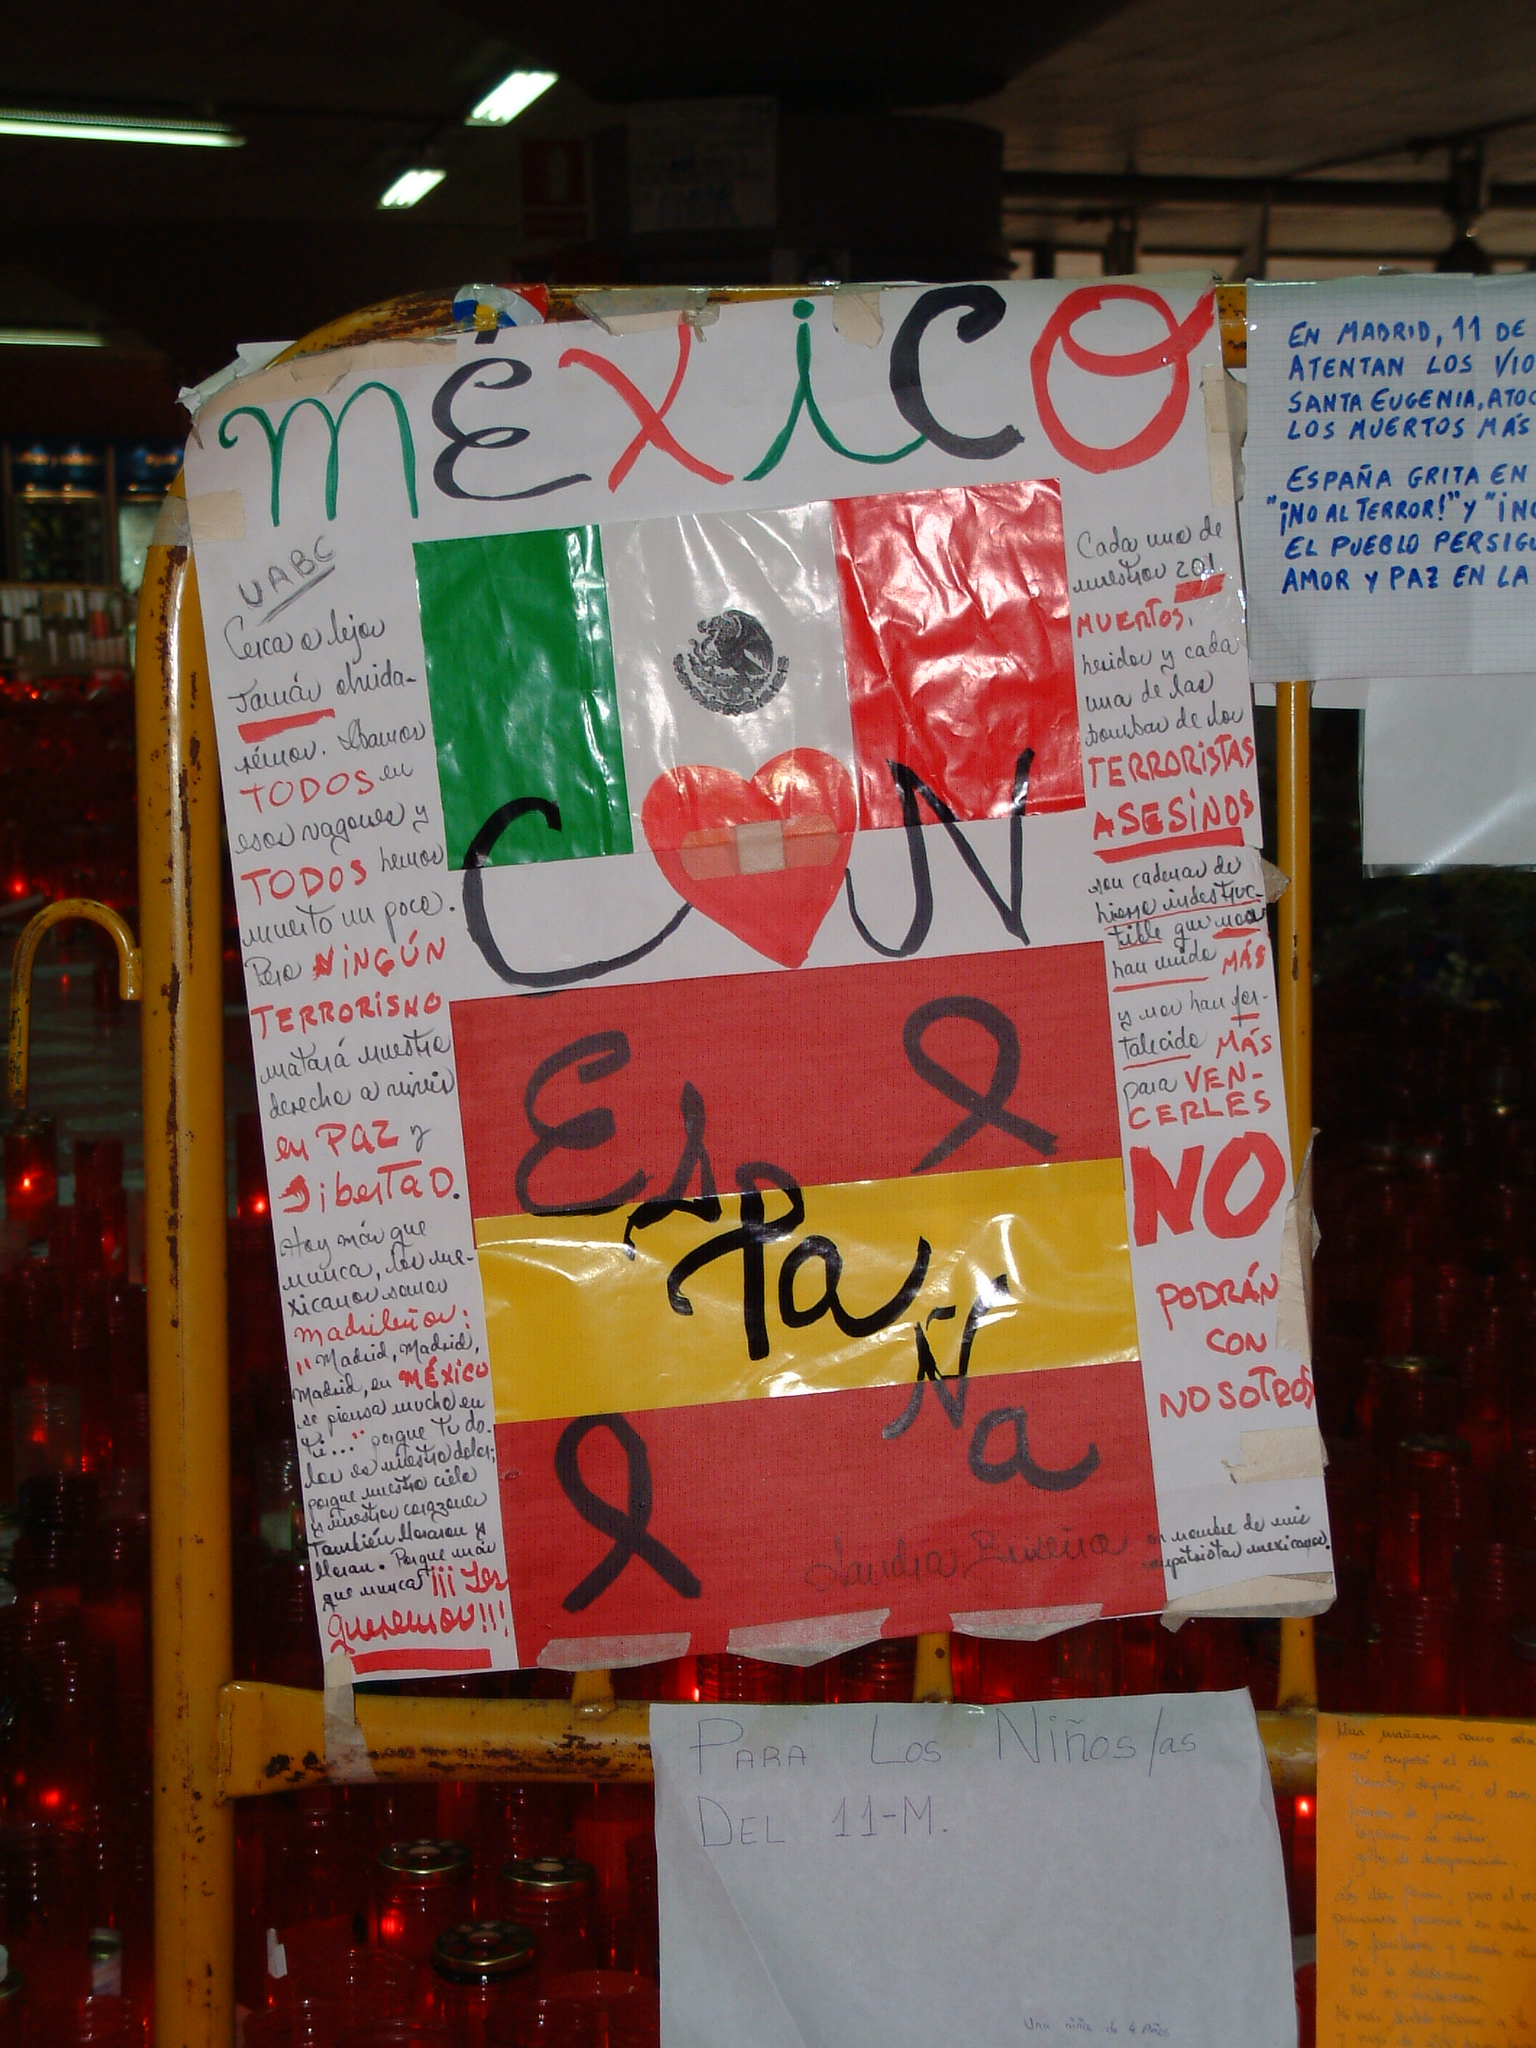 MÉXiCO
UABC
Cerca o lejos
Jamás olvida-
rémos. Íbamos
TODOS en
esos vagones y
TODOS hemos
muerto un poco.
Pero NiNGÚN
TERRORiSMO
matará nuestro
derecho a vivir
en PAZ y
LibertAD.
Hoy más que
nunca, los me-
xicanos somos
madrileños:
"Madrid, Madrid,
Madrid, en MÉXiCO
se piensa mucho en
tí..." porque tu do-
lor es nuestro dolor;
porque nuestro cielo
y nuestros corazones
también lloraron y
lloran. Porque más
que nunca ¡¡¡Los
queremos!!!
CON
EsPaÑa
Cada uno de
nuestros 201
MUERTOS,
heridos y cada
una de las
bombas de los
TERRORiSTAS
ASESiNOS
son cadenas de
hierro indestruc-
tible que nos
han unido MÁS
y nos han for-
talecido MÁS
para VEN-
CERLES
NO
PODRÁN
CON
NOSOTROS
Sandra
en nombre de mis
compatriotas mexicanos.
EN MADRID, 11 DE
ATENTAN LOS VIO
SANTA EUGENIA, ATOC
LOS MUERTOS MÁS
ESPAÑA GRITA EN
"¡NO AL TERROR!" Y "¡NO
EL PUEBLO PERSIGU
AMOR Y PAZ EN LA
PARA LOS NIÑOS/as
DEL 11-M.
Una niña de 4 Años
Una mañana como otra
así empezó el día